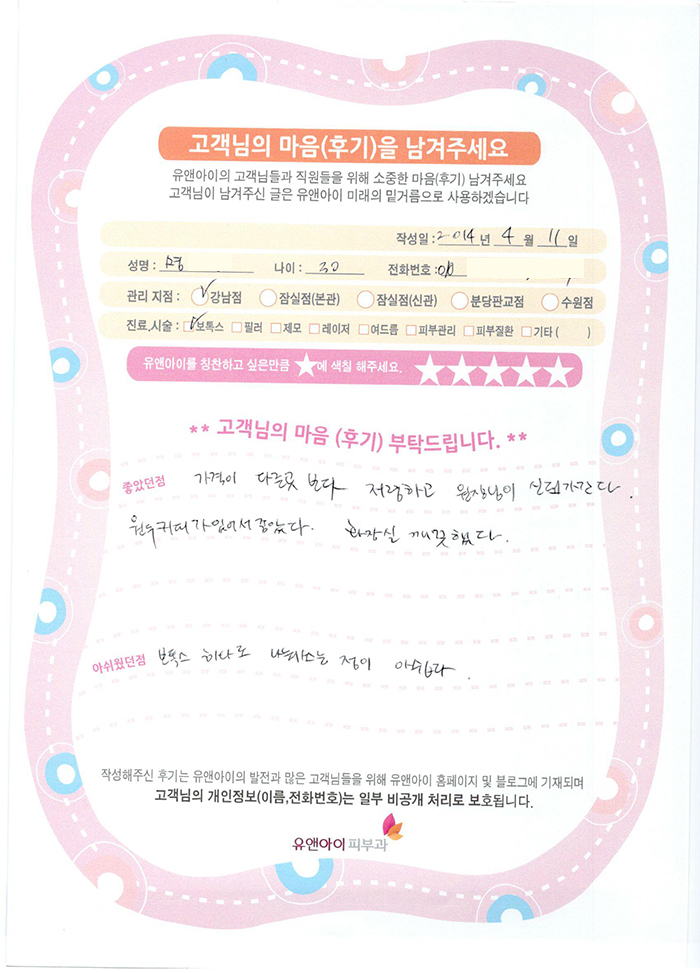 고객님의 마음(후기)을 남겨주세요
유앤아이의 고객님들과 직원들을 위해 소중한 마음(후기) 남겨주세요
고객님이 남겨주신 글은 유앤아이 미래의 밑거름으로 사용하겠습니다
작성일 : 2014 년 4 월 11 일
성명 : 나이 : 30 전화번호 : 010
관리 지점 : 강남점 잠실점(본관) 잠실점(신관) 분당판교점 수원점
진료,시술 : 보톡스 필러 제모 레이저 여드름 피부관리 피부질환 기타 ( )
유앤아이를 칭찬하고 싶은만큼 ★에 색칠 해주세요. ★★★★★
** 고객님의 마음 (후기) 부탁드립니다. **
좋았던점 가격이 다른곳 보다 저렴하고 원장님이 신뢰가간다.
원두커피가 있어서 좋았다. 화장실 깨끗했다.
아쉬웠던점 보톡스 하나로 나눠쓰는 점이 아쉽다.
작성해주신 후기는 유앤아이의 발전과 많은 고객님들을 위해 유앤아이 홈페이지 및 블로그에 기재되며
고객님의 개인정보(이름,전화번호)는 일부 비공개 처리로 보호됩니다.
유앤아이피부과